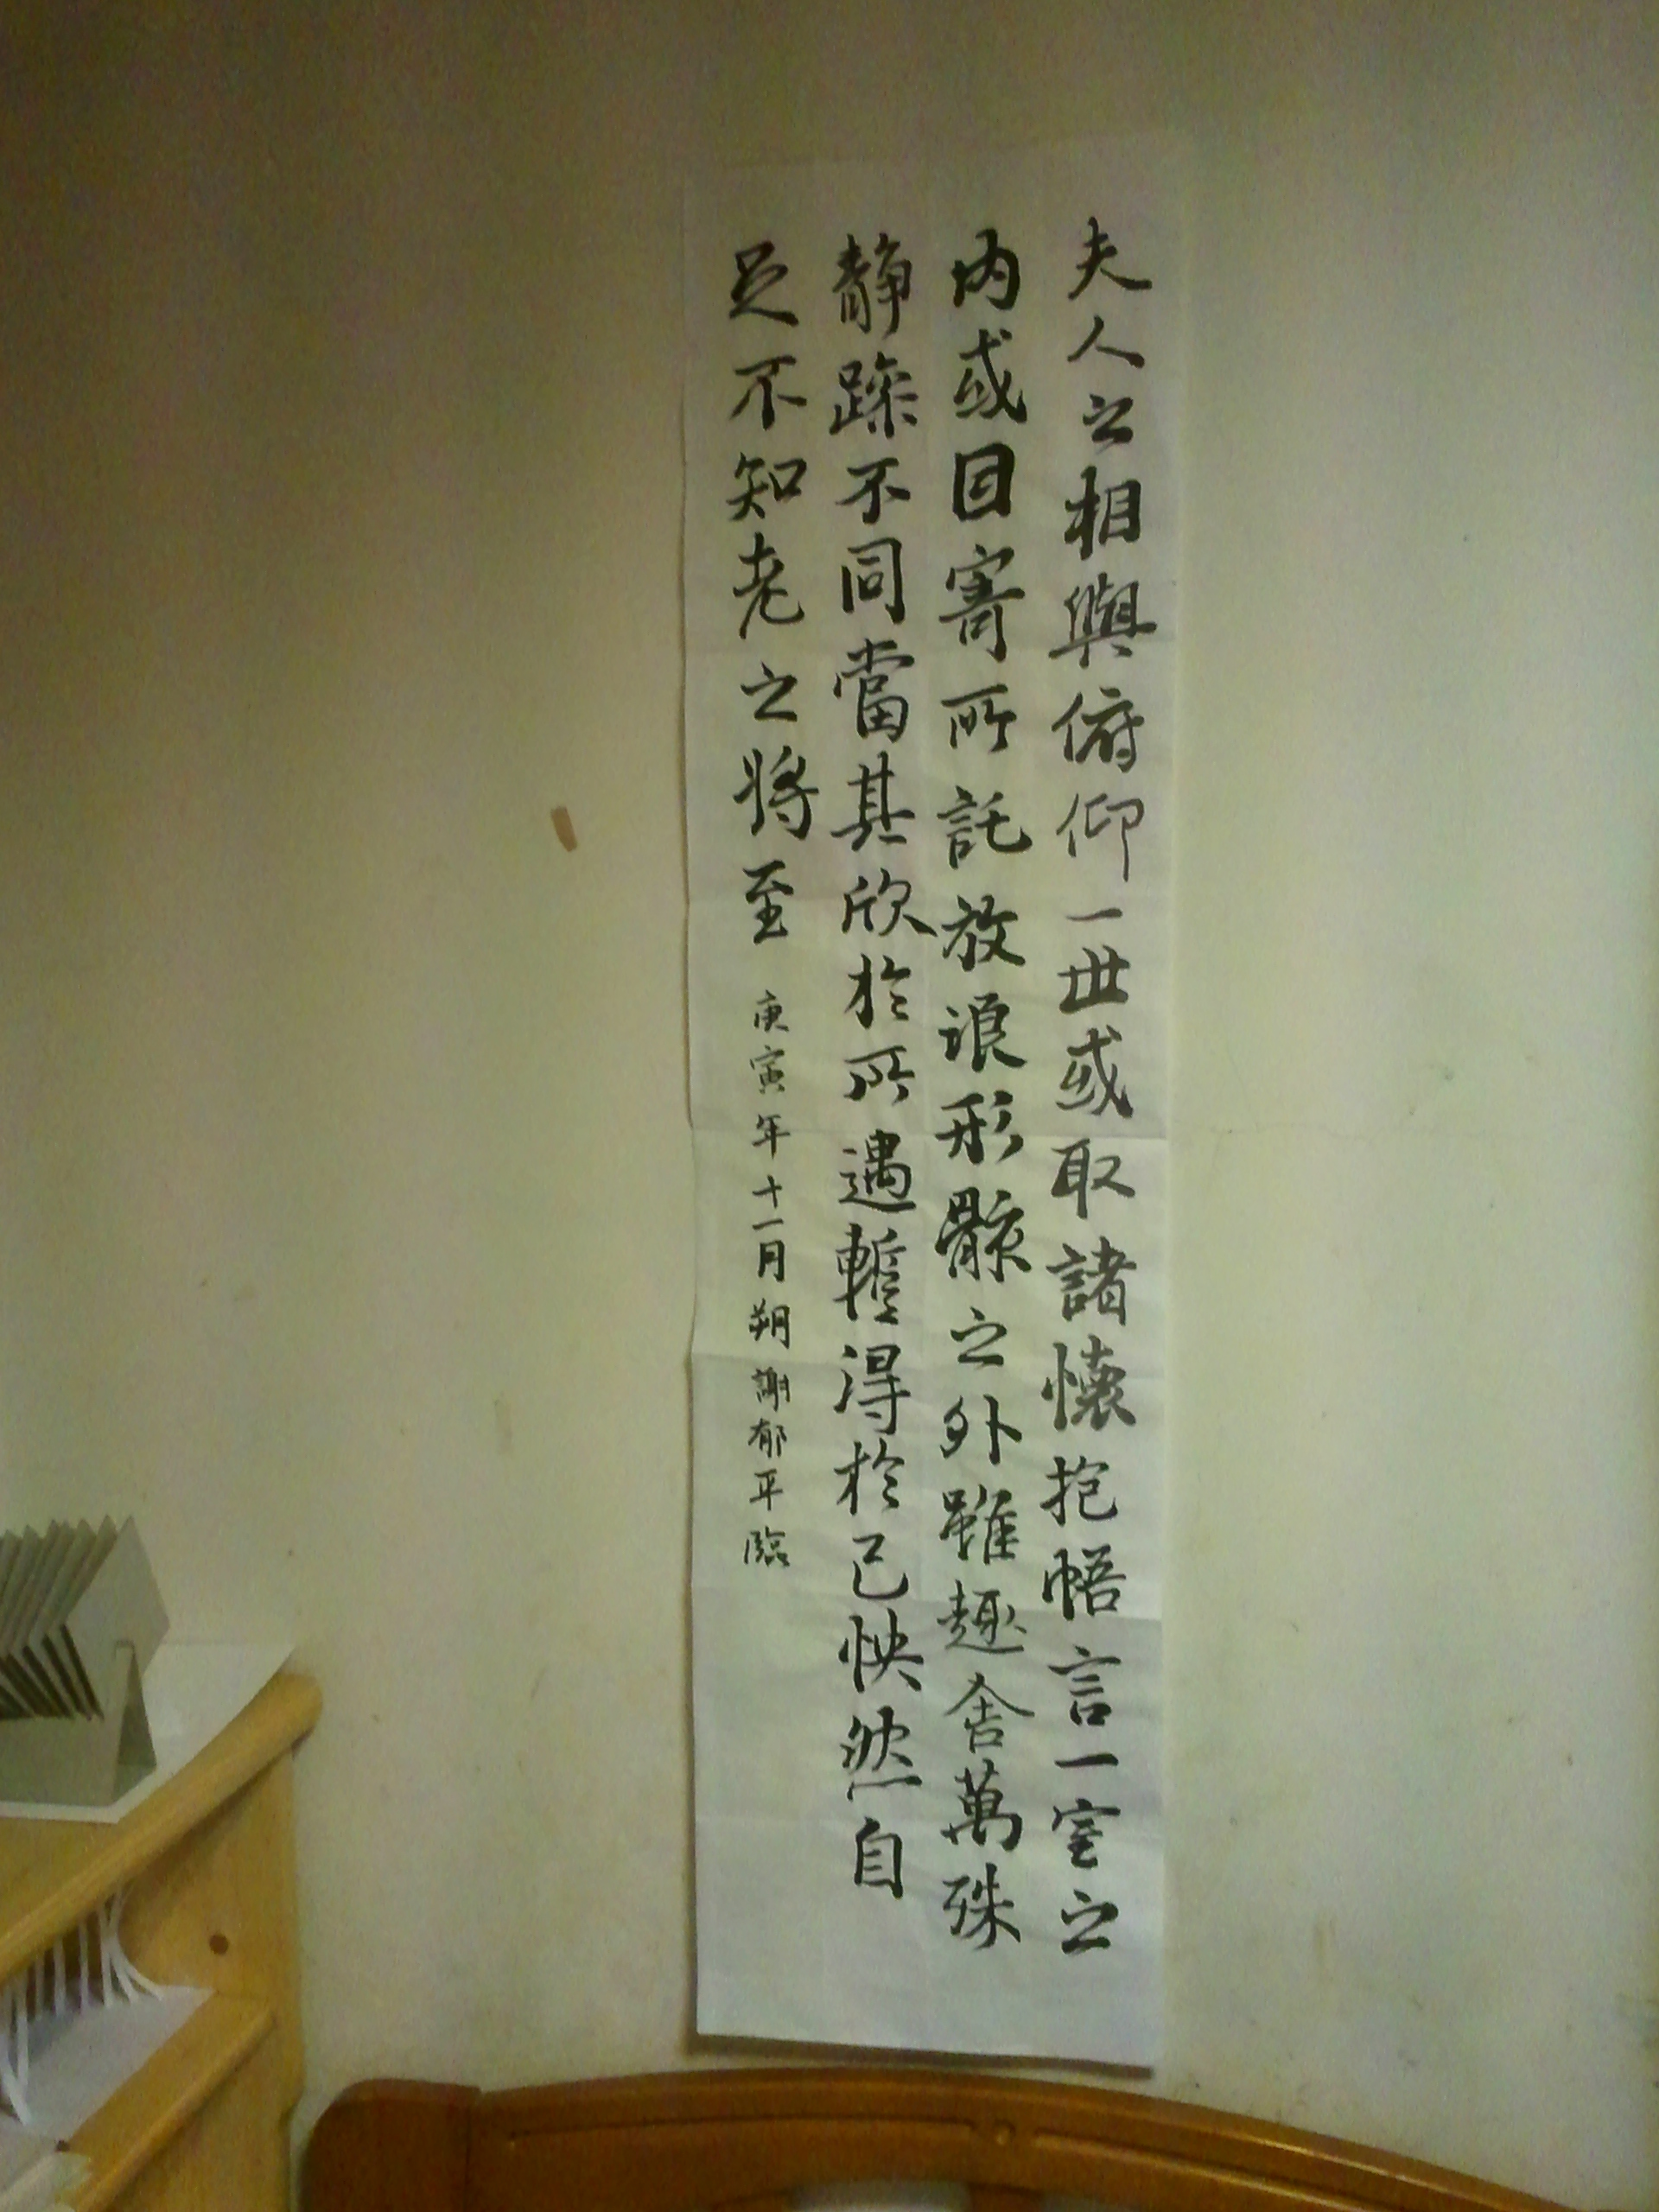 夫人之相與俯仰一世或取諸懷抱悟言一室之
內或因寄所託放浪形骸之外雖趣舍萬殊
靜躁不同當其欣於所遇暫得於己怏然自
足不知老之將至
庚寅年十一月朔謝郁平臨